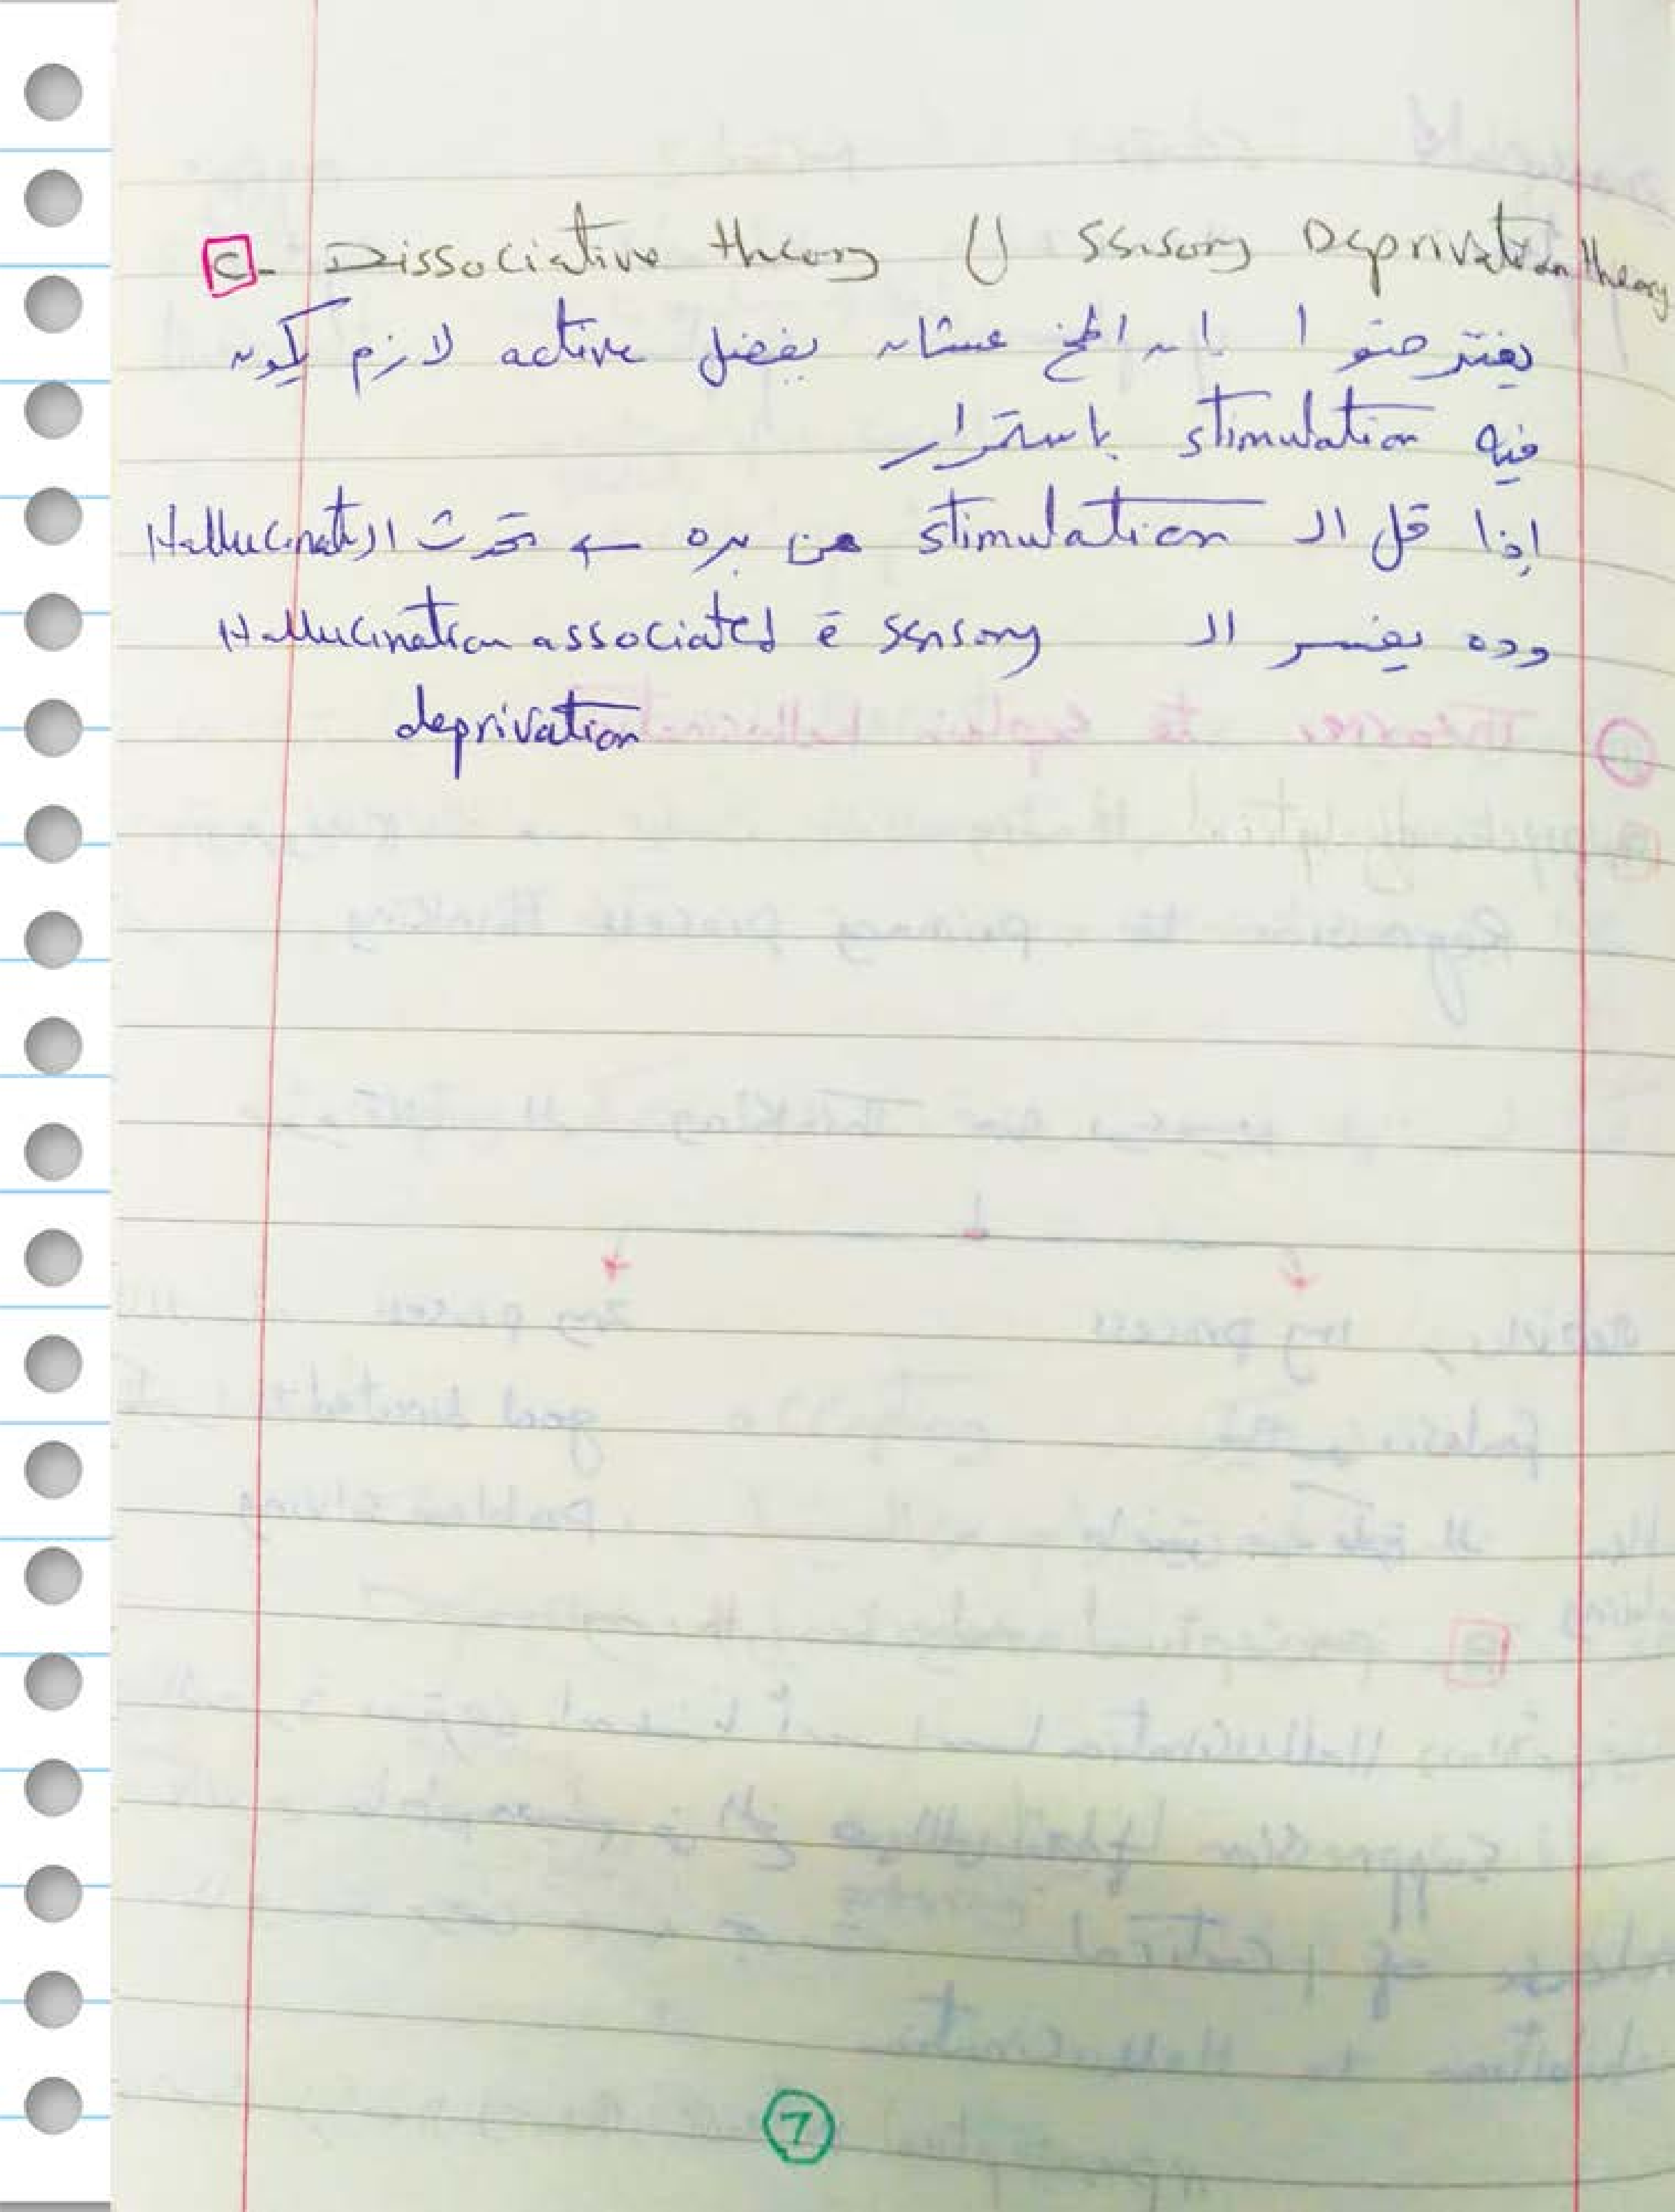 C- Dissociative theory () Sensory Deprivation theory
يفترضوا إن المخ عشان يفضل active لازم يكون
فيه stimulation باستمرار
إذا قل ال stimulation من بره ← تحدث ال Hallucinat
وده يفسر ال Hallucination associated ē sensory
deprivation
7